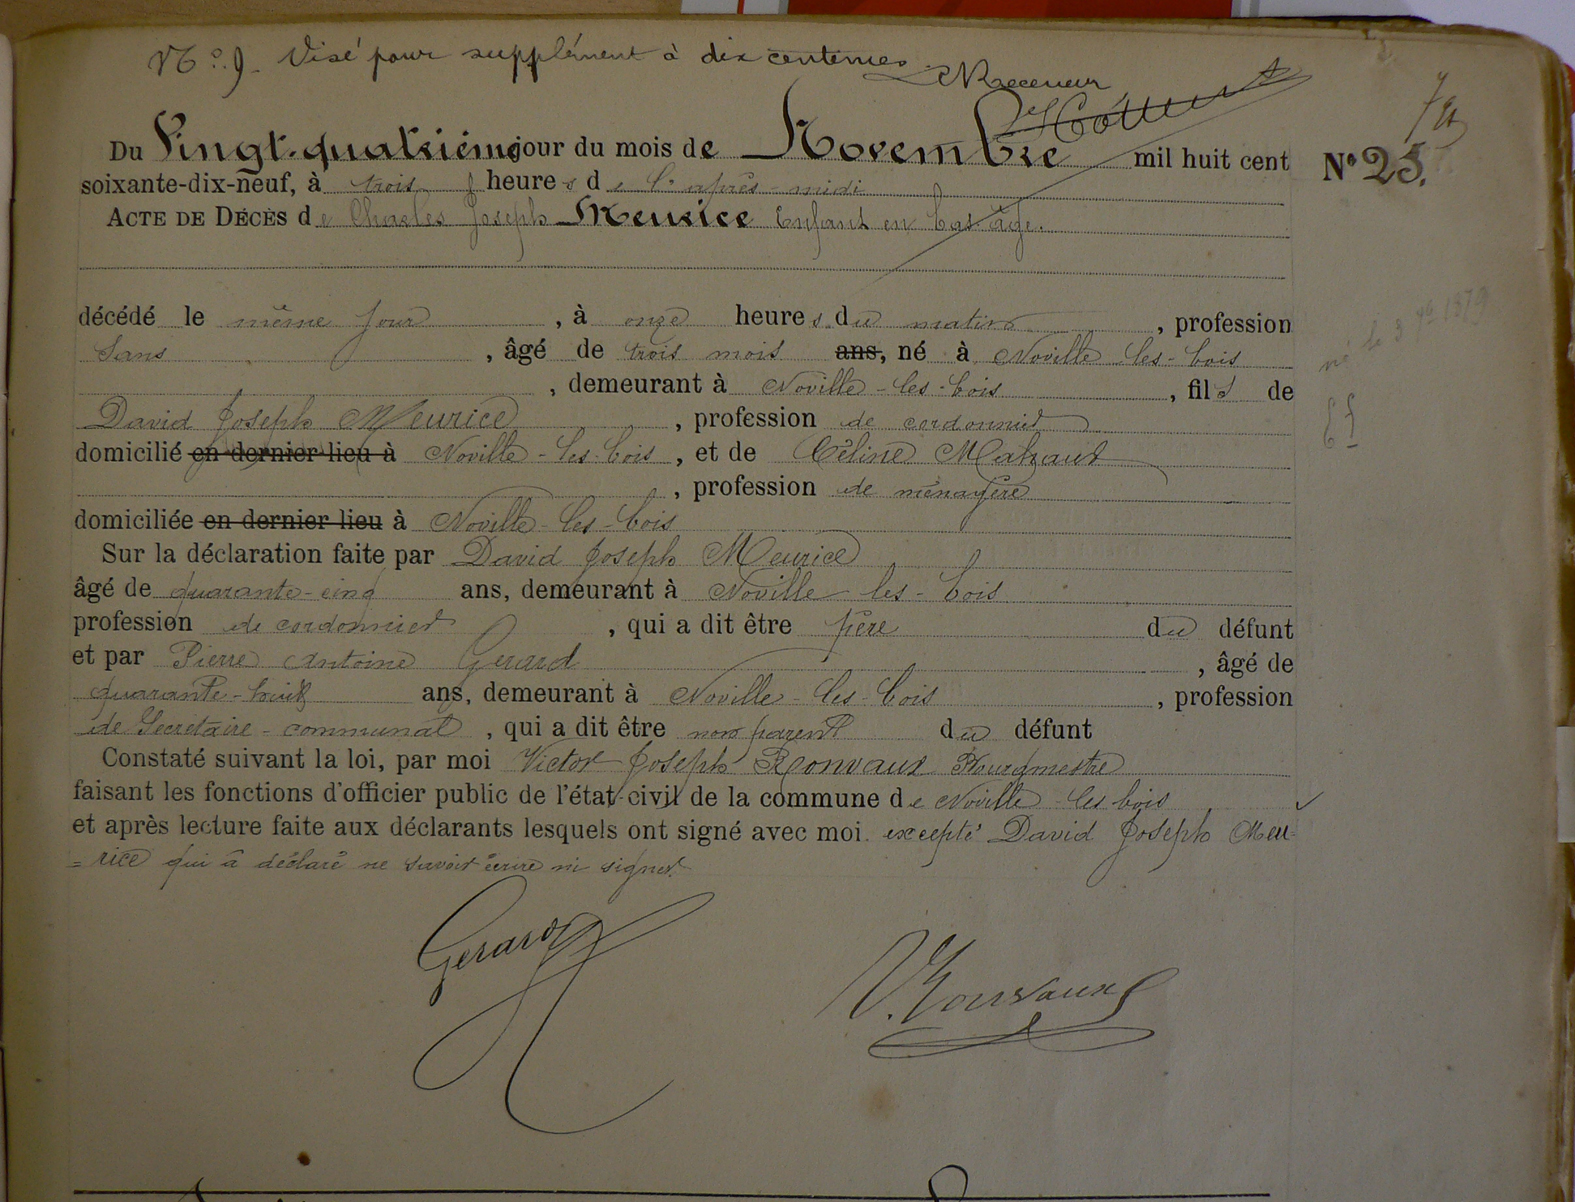 N° 9. Visé pour supplément à dix centimes
Receveur
Du Vingt-quatrième jour du mois de Novembre mil huit cent N° 25.
soixante-dix-neuf, à trois heures de l'après-midi
ACTE DE DÉCÈS de Charles Joseph Meurice Enfant en bas âge.
décédé le même jour, à onze heures du matin, profession
Sans, âgé de trois mois ans, né à Noville-les-bois
, demeurant à Noville-les-bois, fils de
David Joseph Meurice, profession de cordonnier
domicilié en dernier lieu à Noville-les-bois, et de Céline Mahaut
, profession de ménagère
domiciliée en dernier lieu à Noville-les-bois
Sur la déclaration faite par David Joseph Meurice
âgé de quarante-cinq ans, demeurant à Noville-les-bois
profession de cordonnier, qui a dit être père du défunt
et par Pierre Antoine Gerard, âgé de
quarante-huit ans, demeurant à Noville-les-bois, profession
de Secrétaire-communal, qui a dit être non parent du défunt
Constaté suivant la loi, par moi Victor Joseph Ronvaux Bourgmestre
faisant les fonctions d'officier public de l'état-civil de la commune de Noville-les-bois
et après lecture faite aux déclarants lesquels ont signé avec moi. excepté David Joseph Meu-
=rice qui a déclaré ne savoir écrire ni signer.
né le 3 1879
Gerard
V. Ronvaux